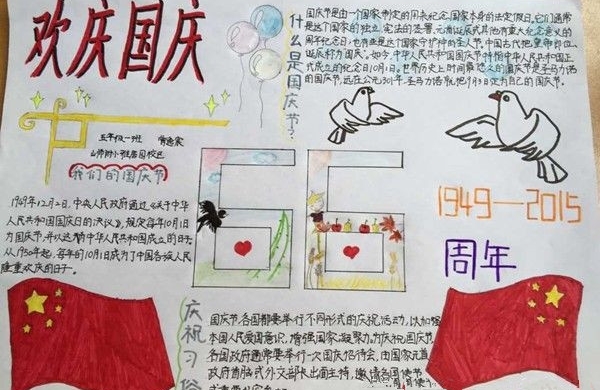 欢庆国庆
什么是国庆节?
国庆节是由一个国家制定的用来纪念国家本身的法定假日。它们通常
是这个国家的独立、宪法的签署、元首诞辰或其他有重大纪念意义的
周年纪念日;也有些是这个国家守护神的圣人节。中国古代把皇帝即位、
诞辰称为"国庆"。如今,中华人民共和国国庆节特指中华人民共和国正
式成立的纪念日10月1日。世界历史上时间最悠久的国庆节是圣马力诺
的国庆节,远在公元301年,圣马力诺就把9月3日定为自己的国庆节。
五年级一班
我们的国庆节
1949年12月2日,中央人民政府通过《关于中华
人民共和国国庆日的决议》,规定每年10月1日
为国庆节,并以这个中华人民共和国成立的日子。
从1950年起,每年的10月1日成为了中国各族人民
隆重欢庆的日子。
66
1949—2015
周年
庆祝习俗
国庆节各国都要举行不同形式的庆祝活动,以加强
本国人民爱国意识,增强国家凝聚力。为庆祝国庆节
各国政府通常要举行一次国庆招待会,由国家元首
政府首脑或外交部长出面主持,邀请各国使节